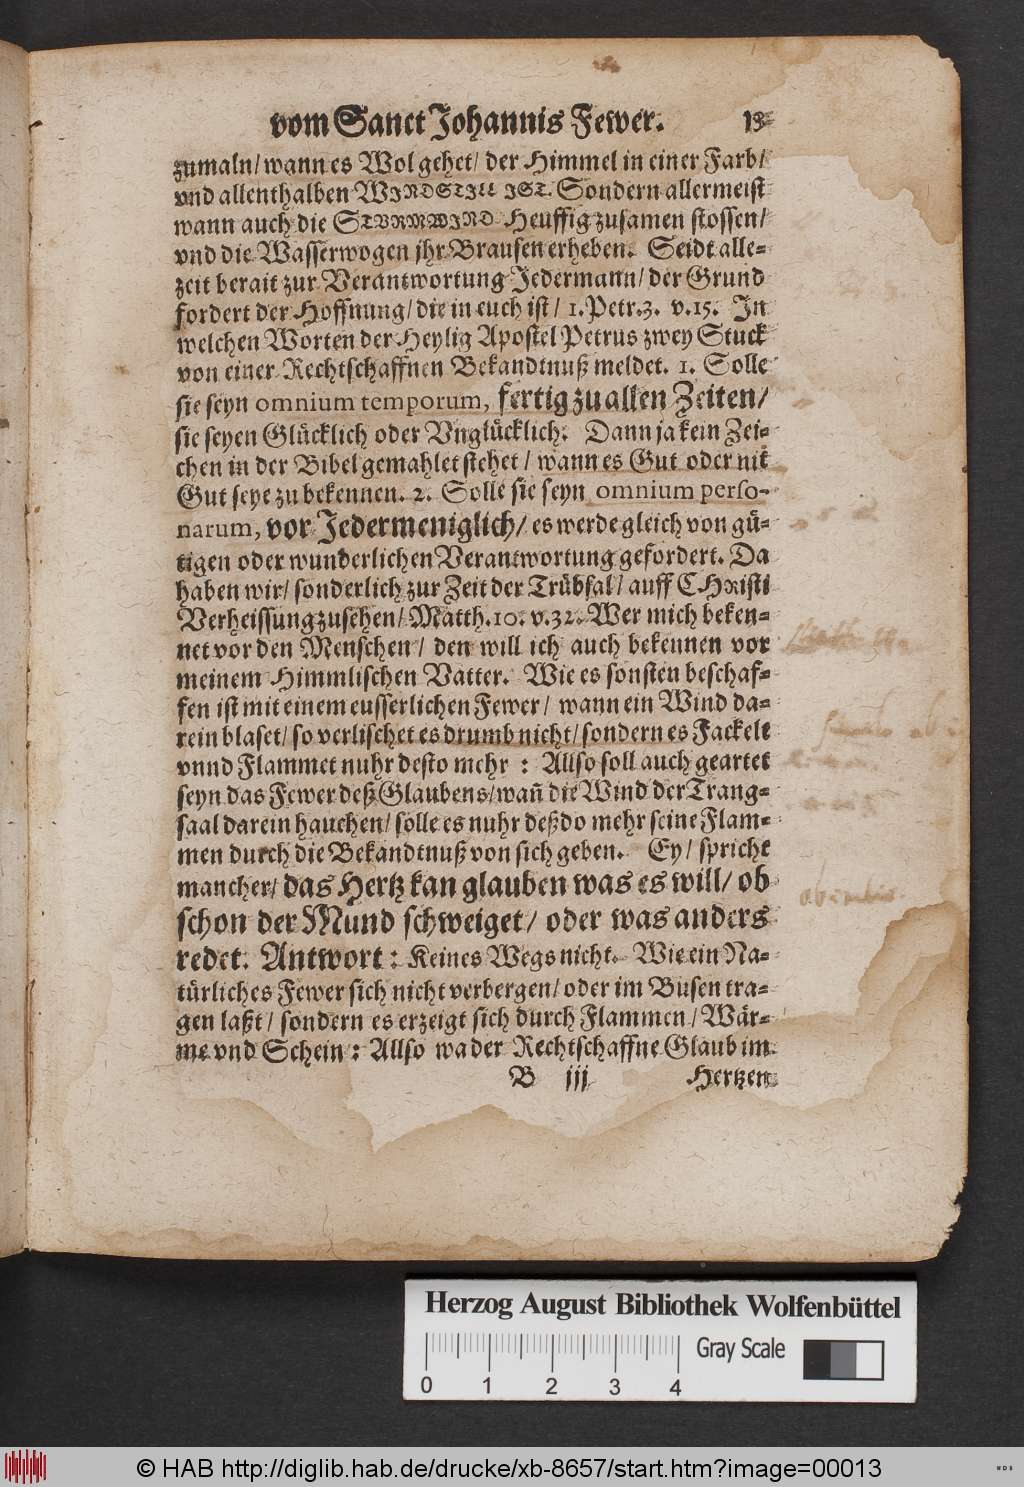 vom Sanct Johannis Fewer. 13
zumaln/ wann es Wol gehet/ der Himmel in einer Farb/
vnd allenthalben WINDSTILL IST. Sondern allermeist
wann auch die STVRMWIND Heuffig zusamen stossen/
vnd die Wasserwogen jhr Brausen erheben. Seidt alle⸗
zeit berait zur Verantwortung Jedermann/ der Grund
fordert der Hoffnung/ die in euch ist/ 1. Petr. 3. v. 15. In
welchen Worten der Heylig Apostel Petrus zwey Stuck
von einer Rechtschaffnen Bekandtnuß meldet. 1. Solle
sie seyn omnium temporum, fertig zu allen Zeiten/
sie seyen Glücklich oder Vnglücklich. Dann ja kein Zei⸗
chen in der Bibel gemahlet stehet/ wann es Gut oder nit
Gut seye zu bekennen. 2. Solle sie seyn omnium perso-
narum, vor Jedermeniglich/ es werde gleich von gü⸗
tigen oder wunderlichen Verantwortung gefordert. Da
haben wir/ sonderlich zur Zeit der Trübsal/ auff CHristi
Verheissung zusehen/ Matth. 10. v. 32. Wer mich beken⸗
net vor den Menschen/ den will ich auch bekennen vor
meinem Himmlischen Vatter. Wie es sonsten beschaf⸗
fen ist mit einem eusserlichen Fewer/ wann ein Wind da⸗
rein blaset/ so verlischet es drumb nicht/ sondern es Fackelt
vnnd Flammet nuhr desto mehr : Allso soll auch geartet
seyn das Fewer deß Glaubens/ wañ die Wind der Trang⸗
saal darein hauchen/ solle es nuhr deßdo mehr seine Flam⸗
men durch die Bekandtnuß von sich geben. Ey/ spricht
mancher/ das Hertz kan glauben was es will/ ob
schon der Mund schweiget/ oder was anders
redet. Antwort : Keines Wegs nicht. Wie ein Na⸗
türliches Fewer sich nicht verbergen/ oder im Busen tra⸗
gen laßt/ sondern es erzeigt sich durch Flammen/ Wär⸗
me vnd Schein : Allso wa der Rechtschaffne Glaub im
B iij Hertzen
Herzog August Bibliothek Wolfenbüttel
Gray Scale
0 1 2 3 4
© HAB http://diglib.hab.de/drucke/xb-8657/start.htm?image=00013